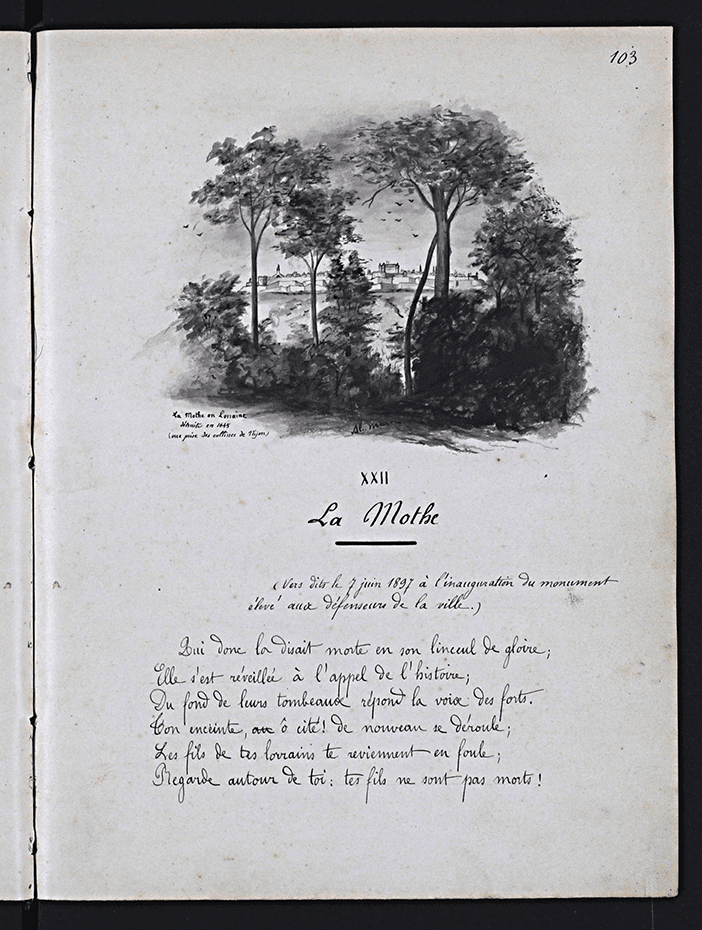 103
La Mothe en Lorraine
détruite en 1645
(vue prise des collines de Vijon)
XXII
La Mothe
(Vers dits le 7 juin 1897 à l'inauguration du monument
élevé aux défenseurs de la ville.)
Qui donc la disait morte en son linceul de gloire ;
Elle s'est réveillée à l'appel de l'histoire ;
Du fond de leurs tombeaux répond la voix des forts.
Ton enceinte, ô cité ! de nouveau se déroule ;
Les fils de tes lorrains te reviennent en foule ;
Regarde autour de toi : tes fils ne sont pas morts !